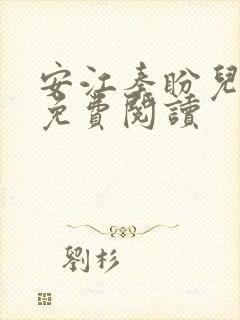 安江秦盼兒
免費閱讀
劉杉